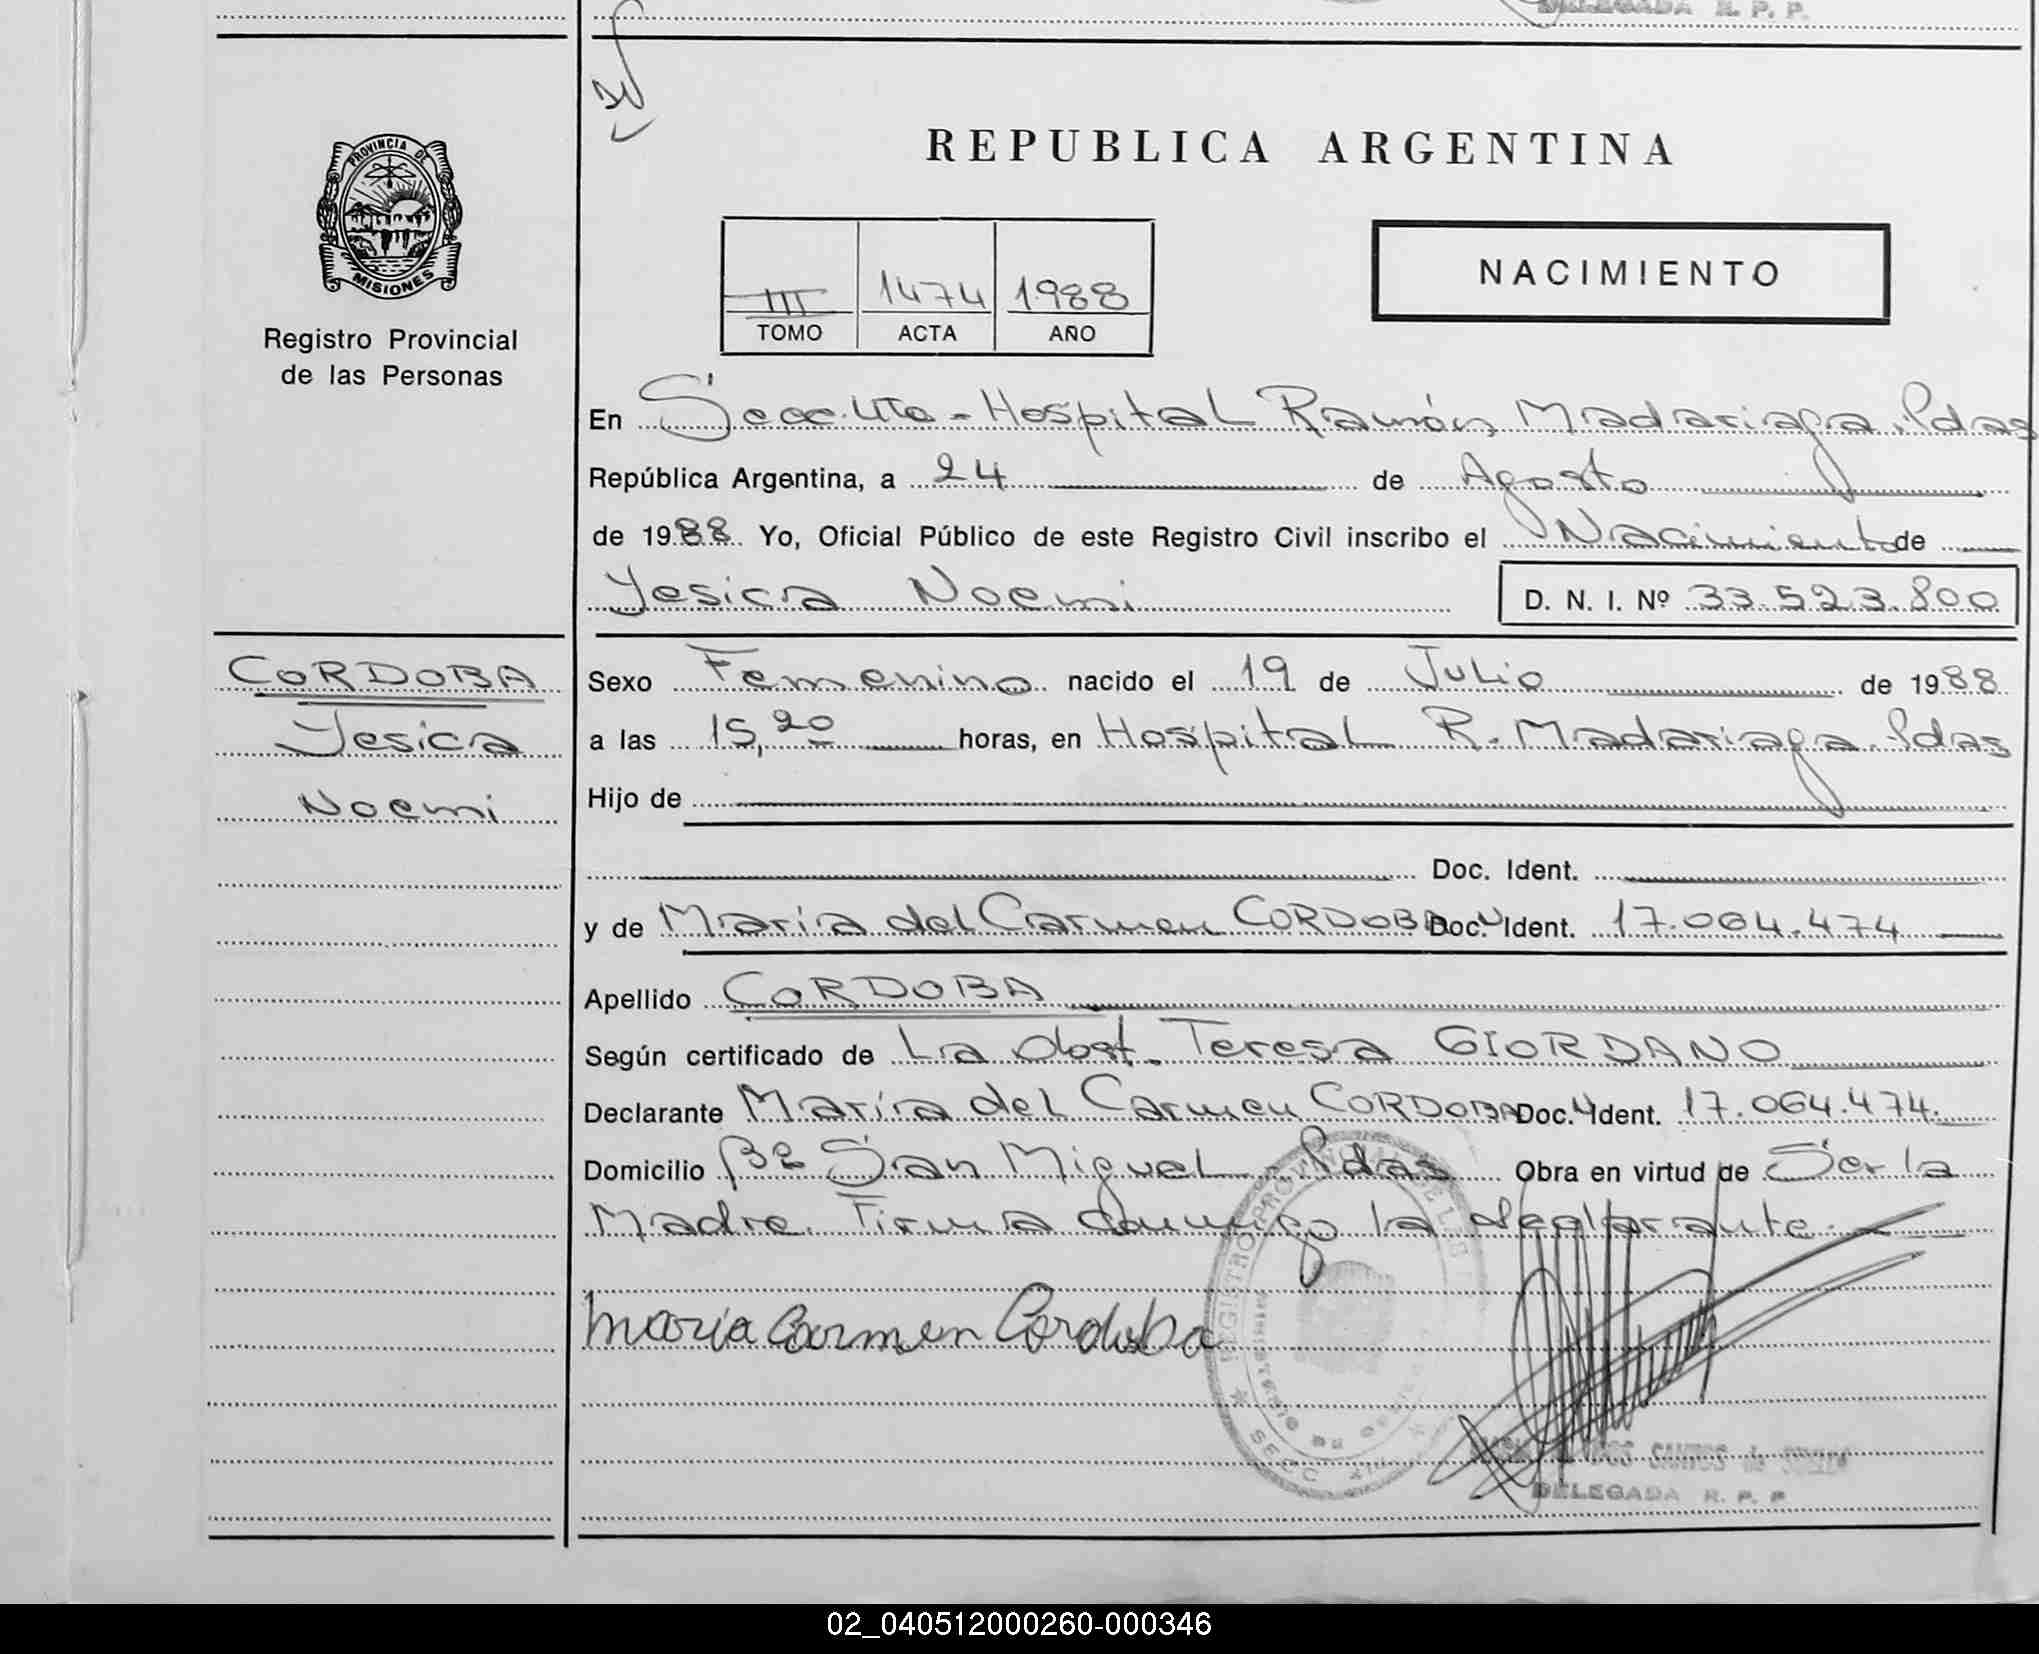 DELEGADA R. P. P.
PROVINCIA DE
MISIONES
Registro Provincial
de las Personas
REPUBLICA ARGENTINA
NACIMIENTO
III 1474 1988
TOMO ACTA AÑO
En Secc. 4ta - Hospital Ramón Madariaga. Pdas
República Argentina, a 24 de Agosto
de 1988 Yo, Oficial Público de este Registro Civil inscribo el Nacimiento de
Yesica Noemi D. N. I. Nº 33.523.800
CORDOBA
Yesica
Noemi
Sexo Femenino nacido el 19 de Julio de 1988
a las 15,20 horas, en Hospital R. Madariaga. Pdas
Hijo de
Doc. Ident.
y de María del Carmen CORDOBA Doc. Ident. 17.064.474
Apellido CORDOBA
Según certificado de La obst. Teresa GIORDANO
Declarante María del Carmen CORDOBA Doc. Ident. 17.064.474.
Domicilio Bº San Miguel - Pdas Obra en virtud de Ser la
Madre. Firma conmigo la declarante.
Maria Carmen Cordoba
REGISTRO PROVINCIAL DE LAS
SECC
DOS SANTOS de
DELEGADA R. P. P.
02_040512000260-000346